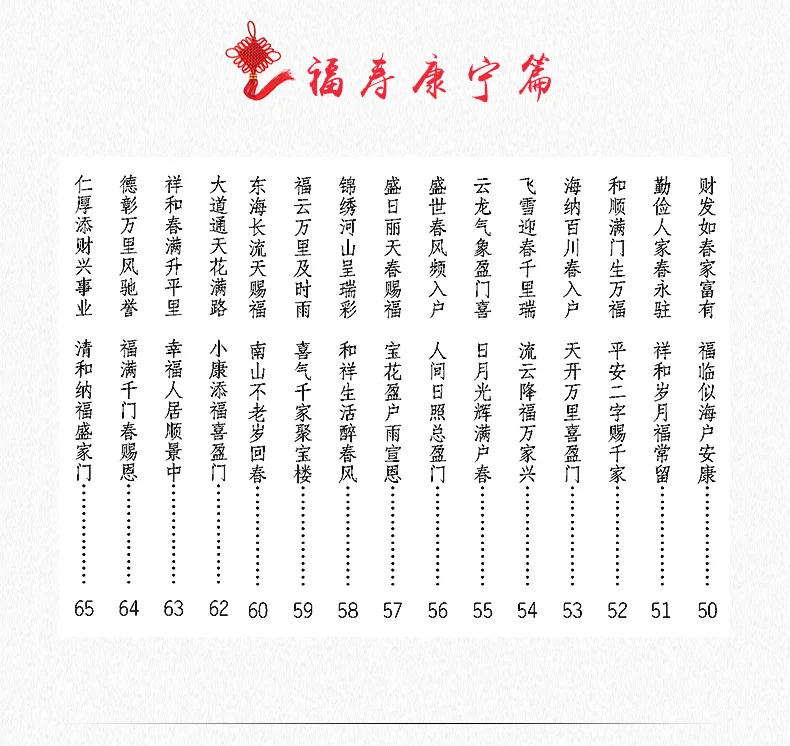 福寿康宁篇
财发如春家富有 福临似海户安康…………50
勤俭人家春永驻 祥和岁月福常留…………51
和顺满门生万福 平安二字赐千家…………52
海纳百川春入户 天开万里喜盈门…………53
飞雪迎春千里瑞 流云降福万家兴…………54
云龙气象盈门喜 日月光辉满户春…………55
盛世春风频入户 人间日照总盈门…………56
盛日丽天春赐福 宝花盈户雨宣恩…………57
锦绣河山呈瑞彩 和祥生活醉春风…………58
福云万里及时雨 喜气千家聚宝楼…………59
东海长流天赐福 南山不老岁回春…………60
大道通天花满路 小康添福喜盈门…………62
祥和春满升平里 幸福人居顺景中…………63
德彰万里风驰誉 福满千门春赐恩…………64
仁厚添财兴事业 清和纳福盛家门…………65